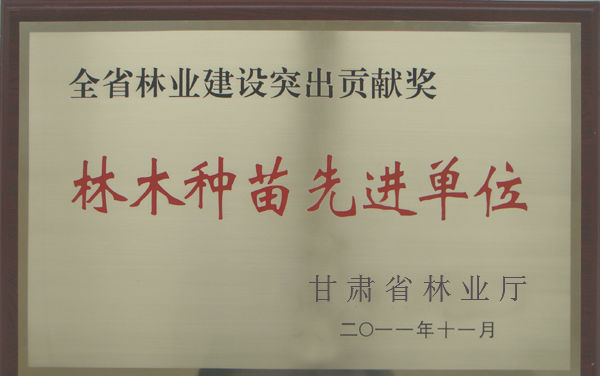 全省林业建设突出贡献奖
林木种苗先进单位
甘肃省林业厅
二〇一一年十一月